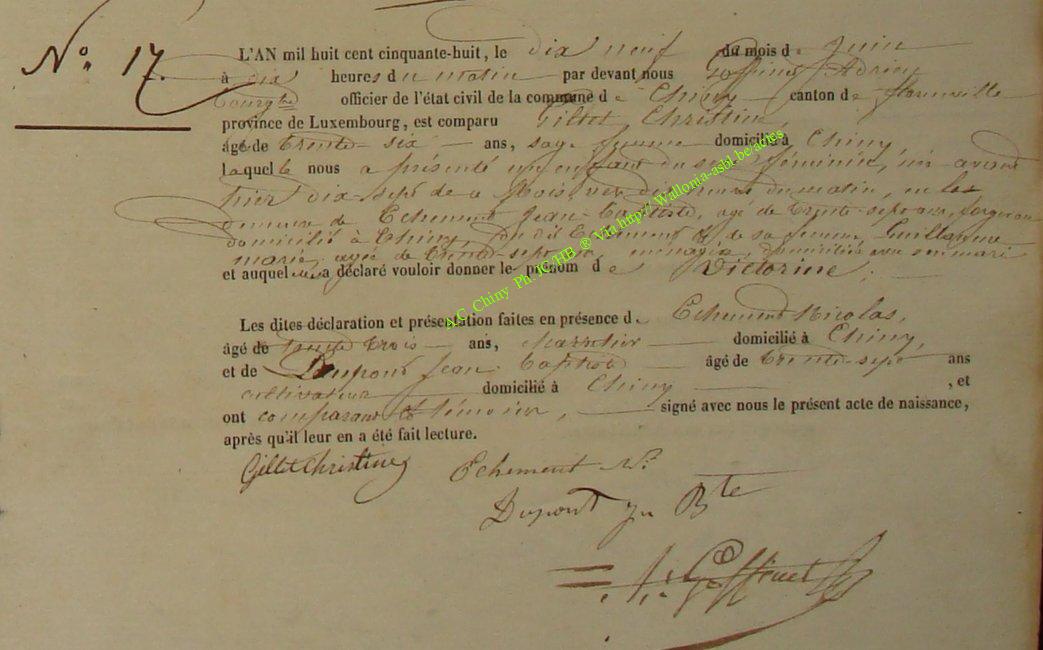 N.o 17.
L'AN mil huit cent cinquante-huit, le dix neuf du mois de Juin
à dix heures du matin par devant nous Goffinet Adrien
bourgtre officier de l'état civil de la commune de Chiny canton de florenville
province de Luxembourg, est comparu Gillet Christine,
âgé de trente-six ans, sage femme domicilié à Chiny,
laquelle nous a présenté un enfant du sexe féminin, né avant
hier dix sept de ce Mois, du matin, en la
demeure de Echement Jean-Baptiste, agé de trente-sept ans, forgeron
domicilié à Chiny, du dit Echement et de sa femme Guillaume
marie, agée de trente-sept ans, ménagère, domiciliée avec son mari
et auquel elle a déclaré vouloir donner le prénom de Victorine.
Les dites déclaration et présentation faites en présence de Echement Nicolas,
âgé de trente trois ans, domicilié à Chiny,
et de Dupont Jean Baptiste âgé de trente-sept ans
cultivateur domicilié à Chiny , et
ont comparant et témoins, signé avec nous le présent acte de naissance,
après qu'il leur en a été fait lecture.
Gillet Christine Echement N.
Dupont Jn Bte
Goffinet
A.C. Chiny Ph. JG/HB ® Via http:// Wallonia-asbl.be/actes